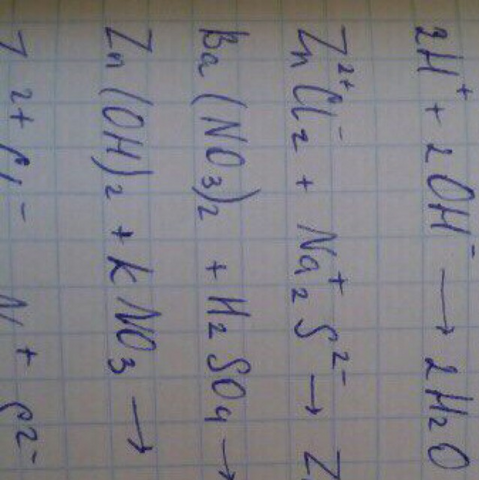 2H⁺ + 2OH⁻ → 2H₂O
Zn²⁺Cl₂⁻ + Na₂⁺S²⁻ → Z
Ba(NO₃)₂ + H₂SO₄ →
Zn(OH)₂ + KNO₃ →